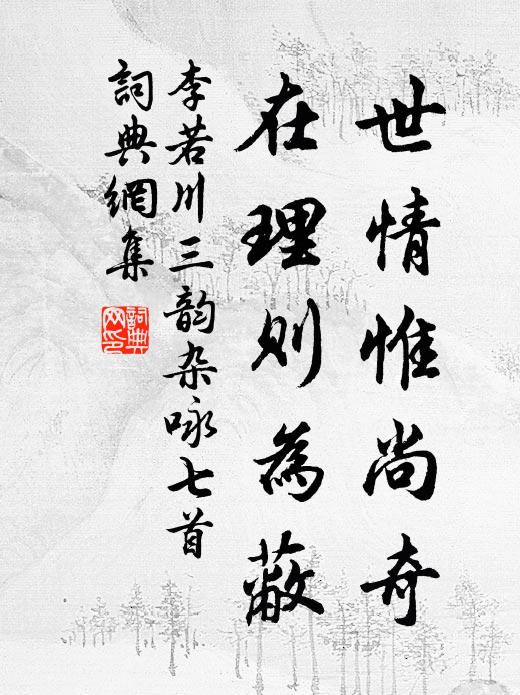 世情惟尚奇
在理则為蔽
李若川三韵杂咏七首
詞典網集
詞典
网印